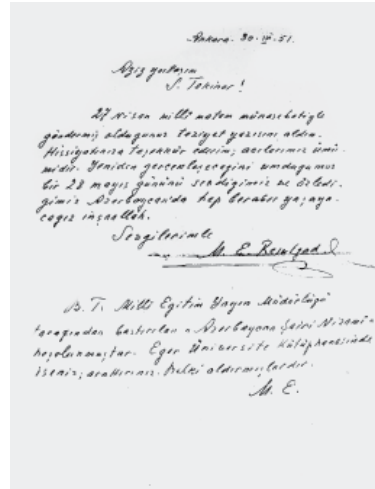 Ankara. 30. IV. 51.
Aziz yurtdaşım
S. Tekiner!
27 Nisan milli matem münasebetiyle
göndermiş olduğunuz taziyet yazısını aldım.
Hissiyatınıza teşekkür ederim; acılarımız ümü
midir. Yeniden gerçekleşeceğini umduğumuz
bir 28 mayıs gününü sevdiğimiz ve özledi-
ğimiz Azerbaycan'da hep beraber yaşaya-
cağız inşaallah.
Sevgilerimle
M. E. Resulzade
B. T. Milli Eğitim Yayın Müdürlüğü
tarafından bastırılan "Azerbaycan Şairi Nizami"
Eğer Üniversite Kütüphanesinde
iseniz; arattırınız. Belki aldırmışlardır.
M. E.